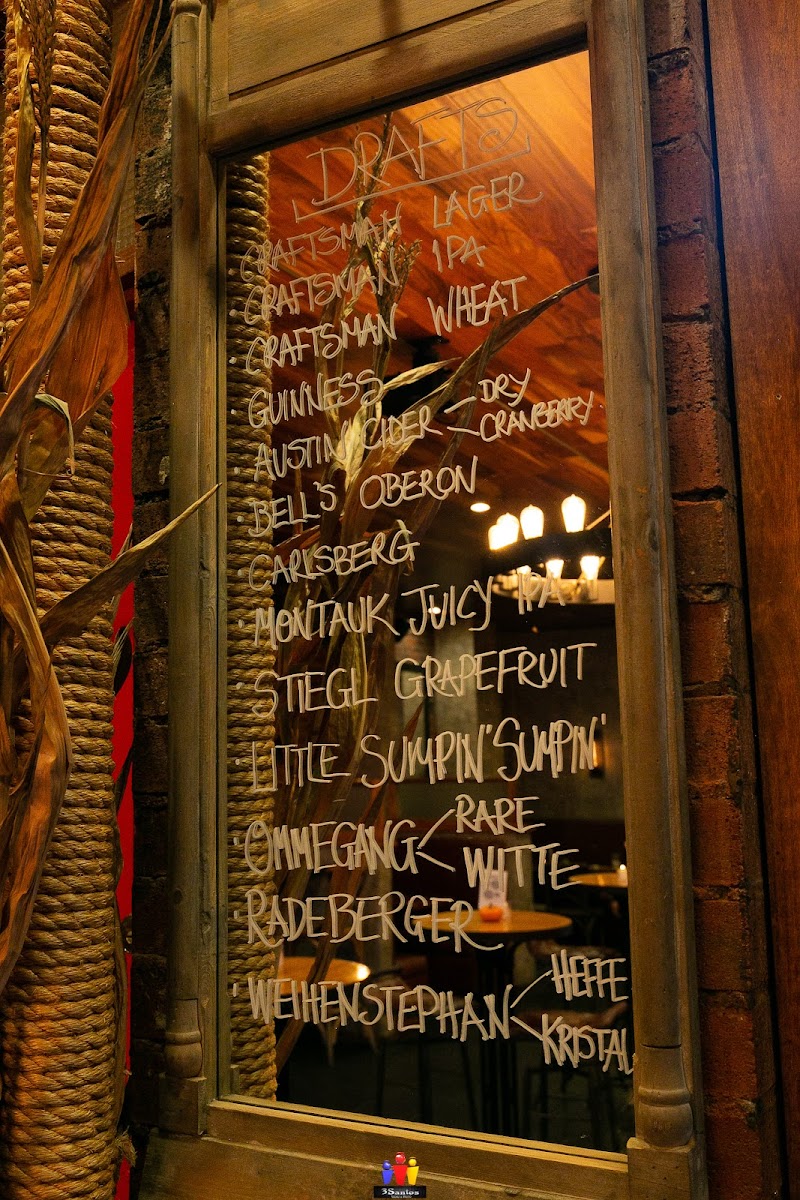 DRAFTS
· CRAFTSMAN LAGER
· CRAFTSMAN IPA
· CRAFTSMAN WHEAT
· GUINNESS
· AUSTIN CIDER < DRY
CRANBERRY
· BELL'S OBERON
· CARLSBERG
· MONTAUK JUICY IPA
· STIEGL GRAPEFRUIT
· LITTLE SUMPIN' SUMPIN'
· OMMEGANG < RARE
WITTE
· RADEBERGER
· WEIHENSTEPHAN < HEFFE
KRISTAL
3Santos